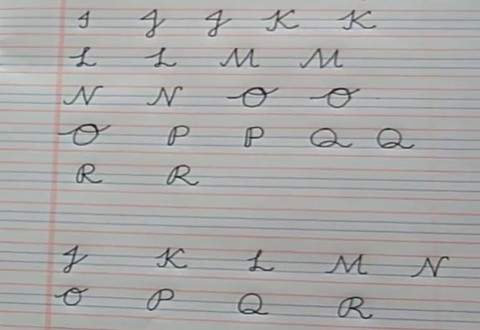 J J J K K
L L M M
N N O O
O P P Q Q
R R
J K L M N
O P Q R